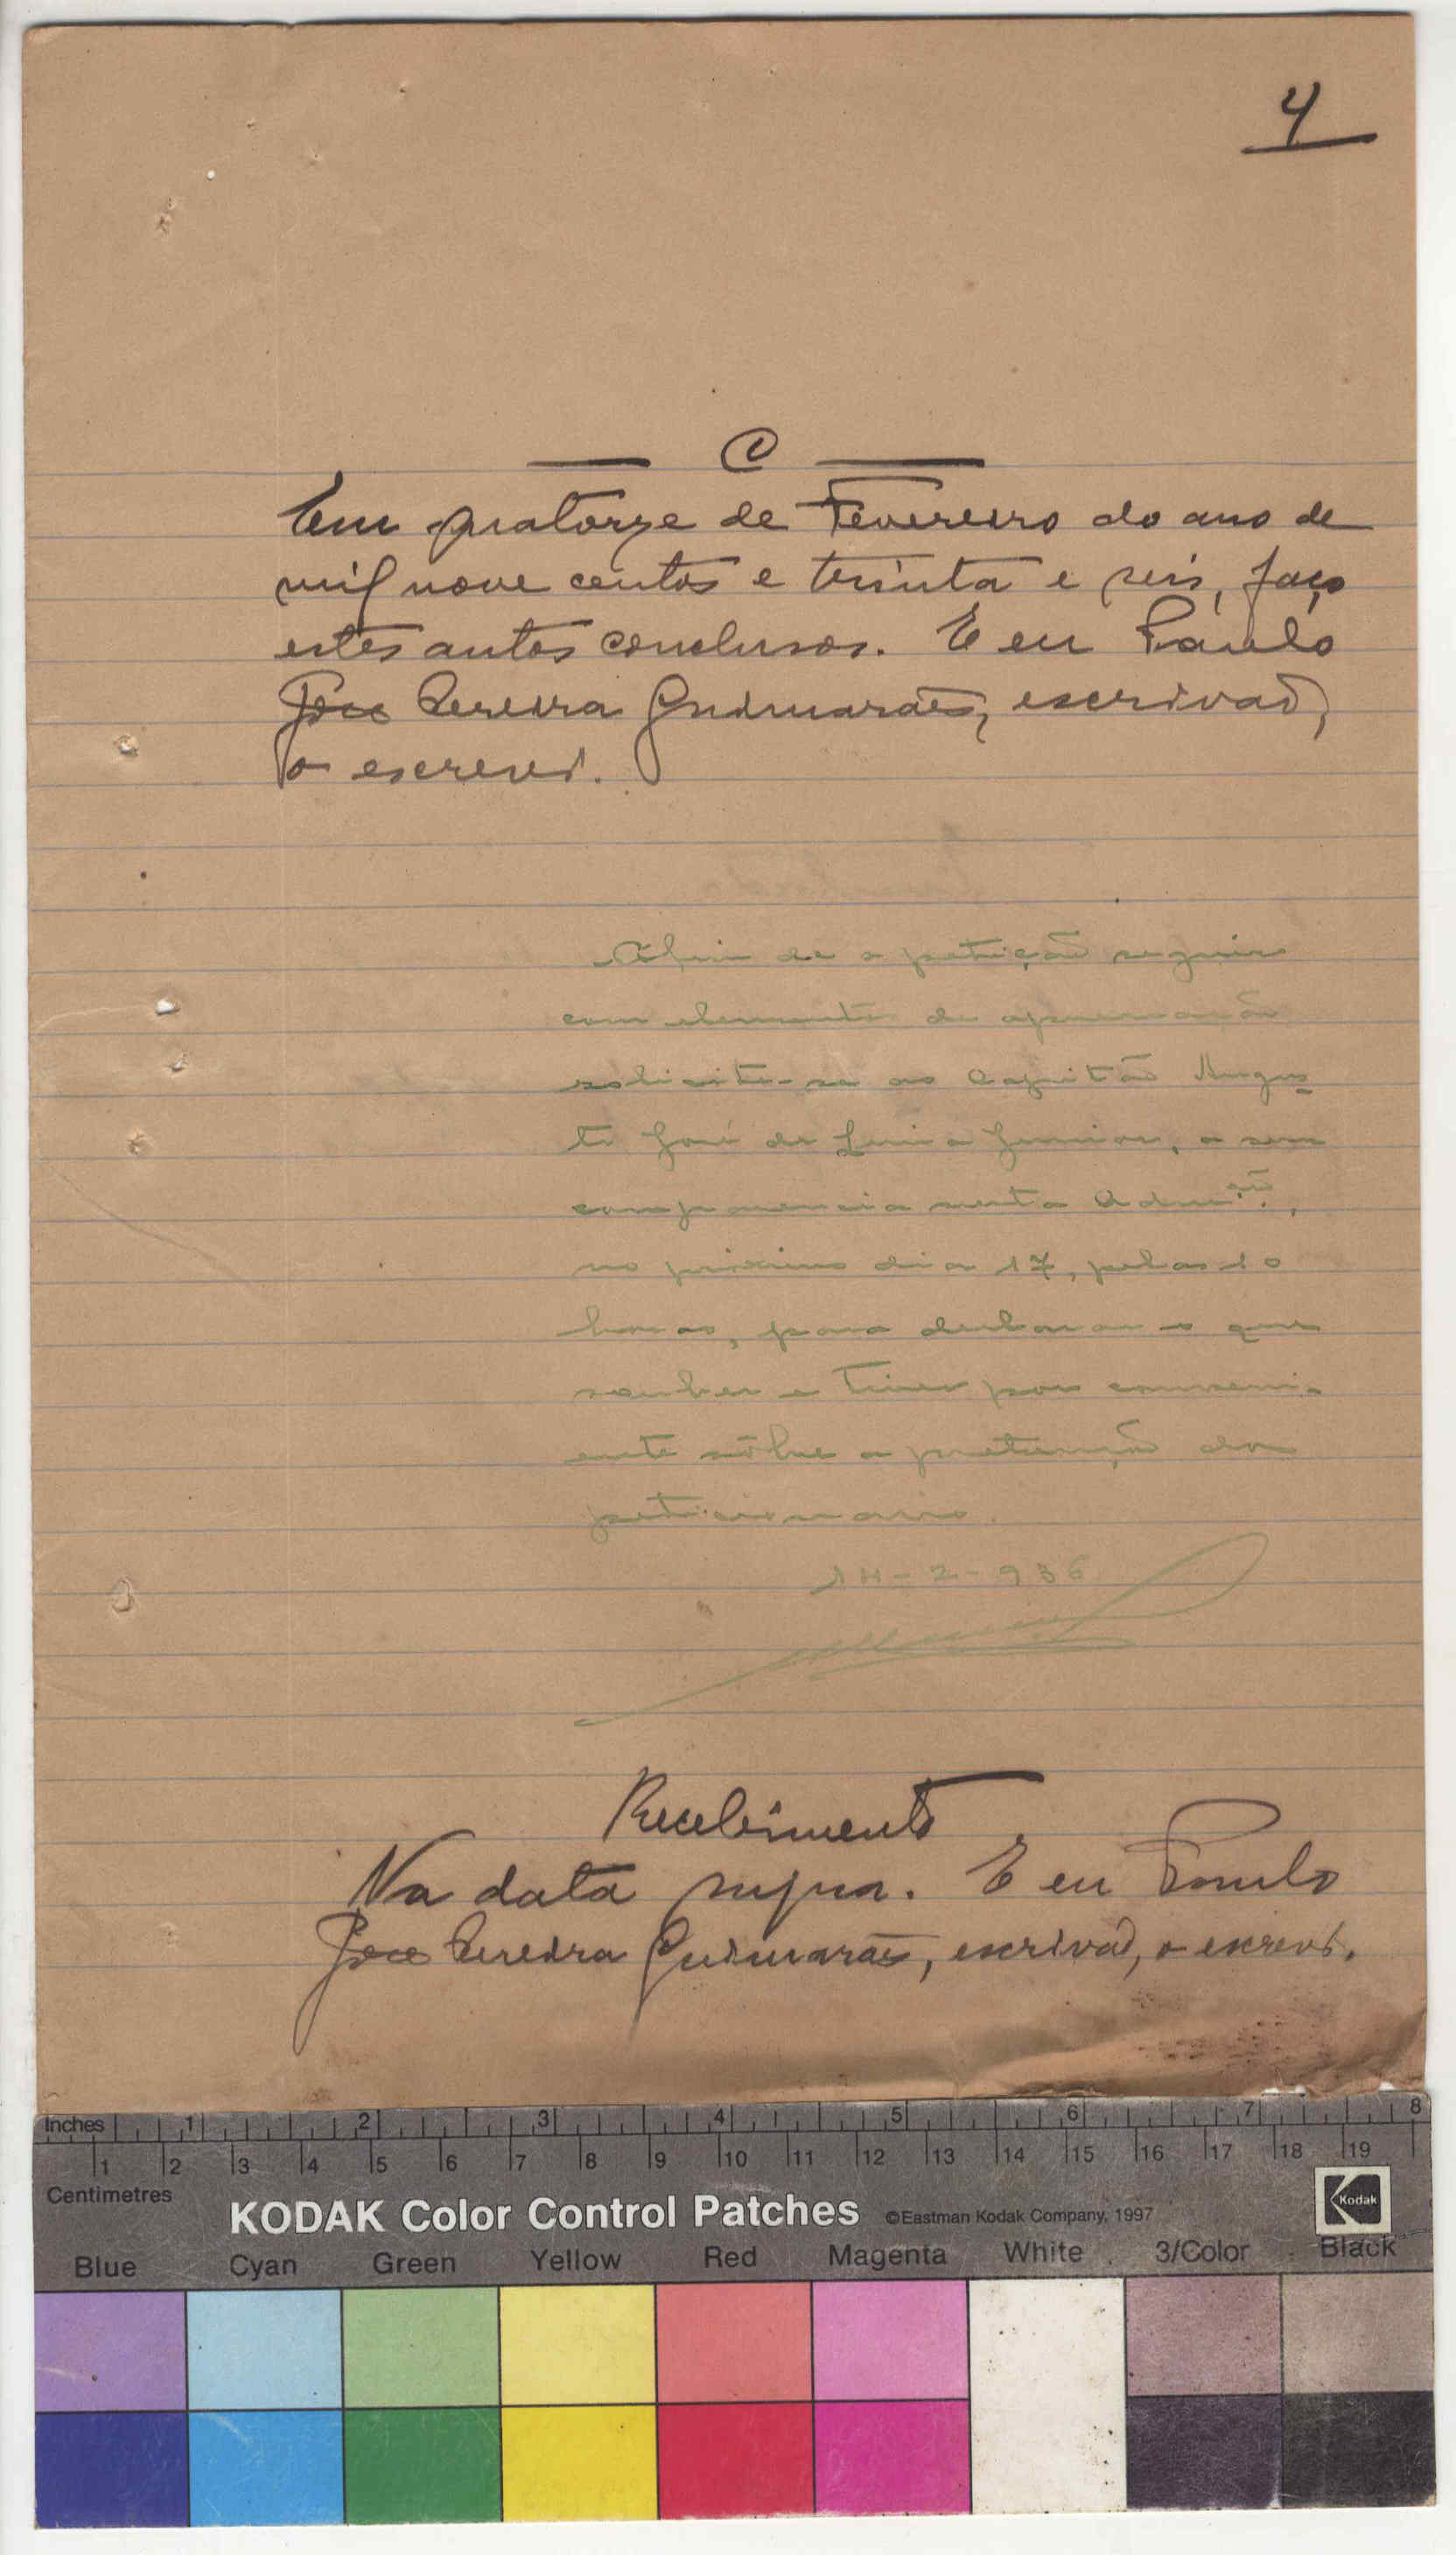 4
C
Em quatorze de Fevereiro do ano de
mil nove centos e trinta e seis, faço
estes autos conclusos. E eu Paulo
José Pereira Guimarães, escrivão,
o escrevi.
Afim de a petição seguir
com elementos de apreciação
solicite-se ao Capitão Augus-
to José de Lima Junior, a sua
comparencia nesta Adm.ção,
no próximo dia 17, pelas 10
horas, para declarar o que
souber e tiver por conveni-
ente sôbre a pretenção do
peticionario.
14-2-936
Recebimento
Na data supra. E eu Paulo
José Pereira Guimarães, escrivão, o escrevi.
Inches 1 2 3 4 5 6 7 8
1 2 3 4 5 6 7 8 9 10 11 12 13 14 15 16 17 18 19
Centimetres
KODAK Color Control Patches ©Eastman Kodak Company, 1997 Kodak
Blue Cyan Green Yellow Red Magenta White 3/Color Black